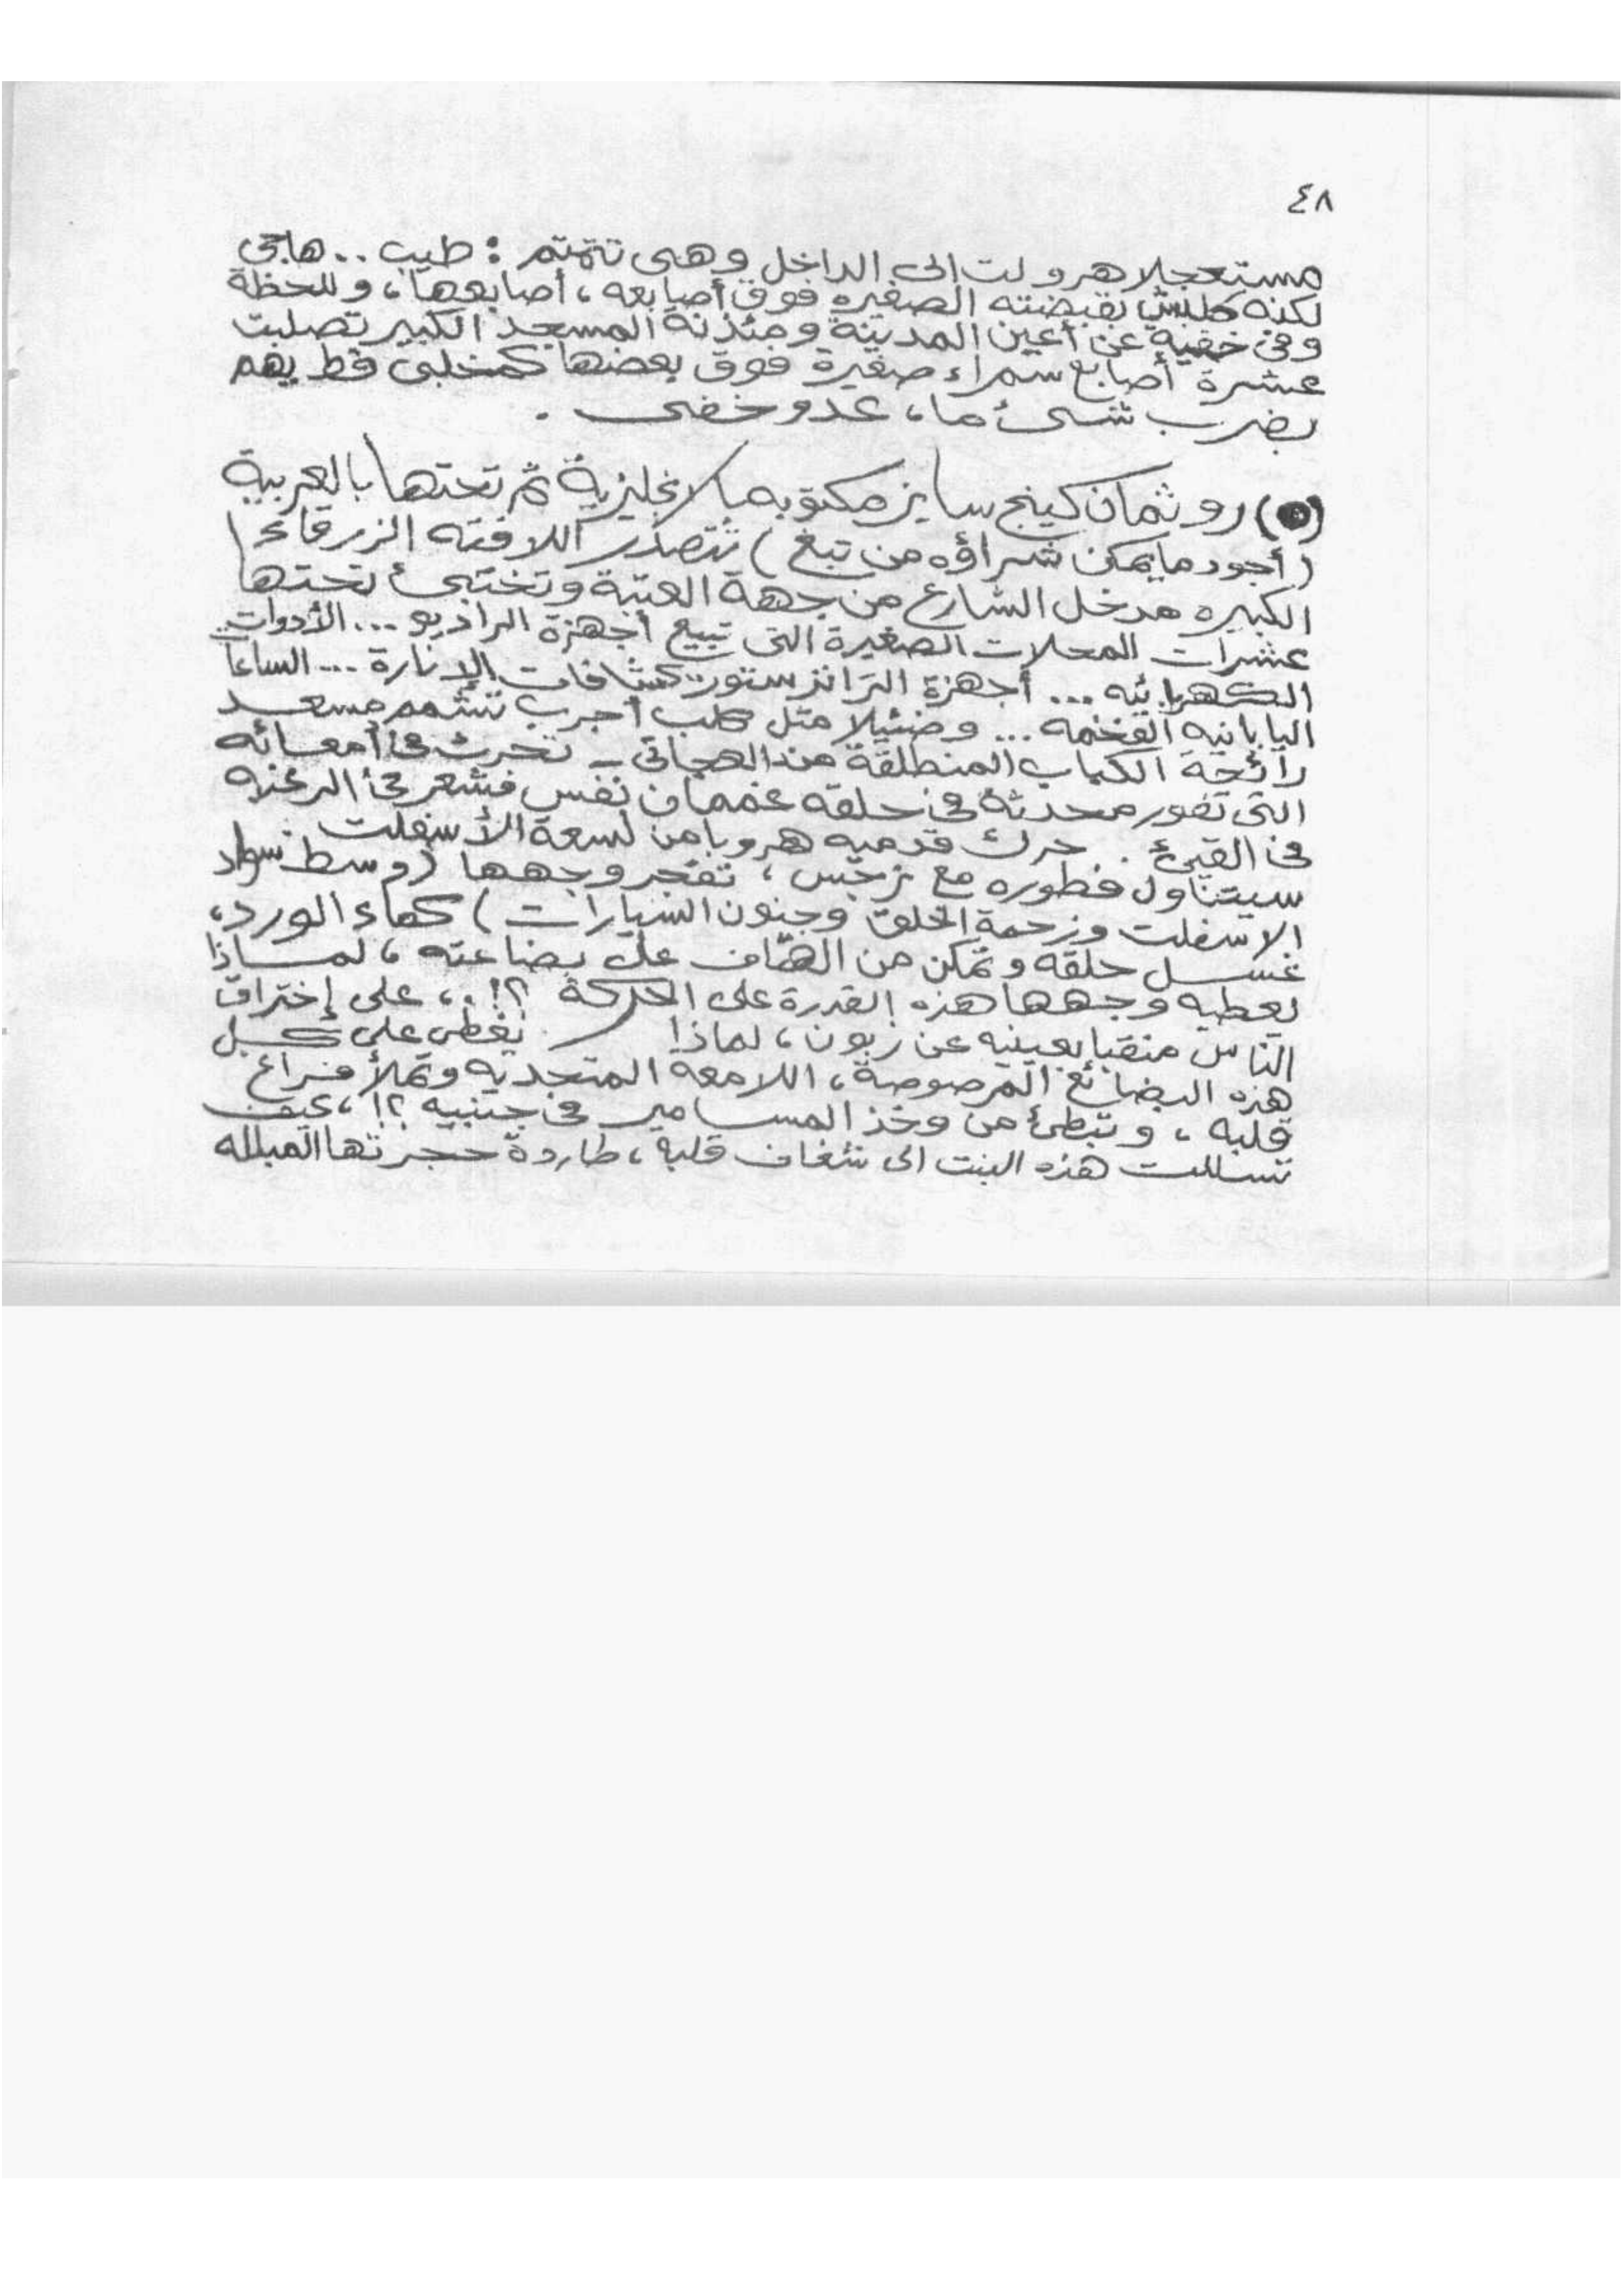 ٤٨
مستعجلا هرولت الى الداخل وهى تتمتم : طيب .. هاجى
لكنه كلبش بقبضته الصغيره فوق أصابعه ، أصابعها ، وللحظة
وفى خفية عن أعين المدينة ومئذنة المسجد الكبير تصلبت
عشرة أصابع سمراء صغيرة فوق بعضها كمخلبى قط يهم
بضرب شىء ما ، عدو خفى .
(٥) روثمان كينج سايز مكتوبه بالانجليزية ثم تحتها بالعربية
( أجود مايمكن شراؤه من تبغ ) تتصدر اللافته الزرقاء
الكبيره مدخل الشارع من جهة العتبة وتختبئ تحتها
عشرات المحلات الصغيرة التى تبيع أجهزة الراديو ... الأدوات
الكهربائيه ... أجهزة الترانزستور كشافات الإنارة ... الساعات
اليابانيه الفخمه ... وضئيلا مثل كلب أجرب تشمم مسعد
رائحة الكباب المنطلقة من العجاتى – تحركت فى أمعائه
التى تفور محدثة فى حلقه غممان نفس فشعر فى الرغبه
فى القيئ . حرك قدميه هروبا من لسعة الأسفلت
سيتناول فطوره مع نرجس ، تفجر وجهها ( وسط سواد
الاسفلت وزحمة الخلق وجنون السيارات ) كماء الورد ،
غسل حلقه وتمكن من الهتاف على بضاعته ، لماذا
يعطيه وجهها هذه القدرة على الحركة ؟! . ، على إختراق
الناس منقبا بعينيه عن زبون ، لماذا يغطى على كل
هذه البضائع المرصوصة ، اللامعه المتحديه وتملأ فراغ
قلبه ، وتبطئ من وخذ المسامير فى جنبيه ؟! ، كيف
تسللت هذه البنت الى شغاف قلبه ، طاردة حجرتها المبلله